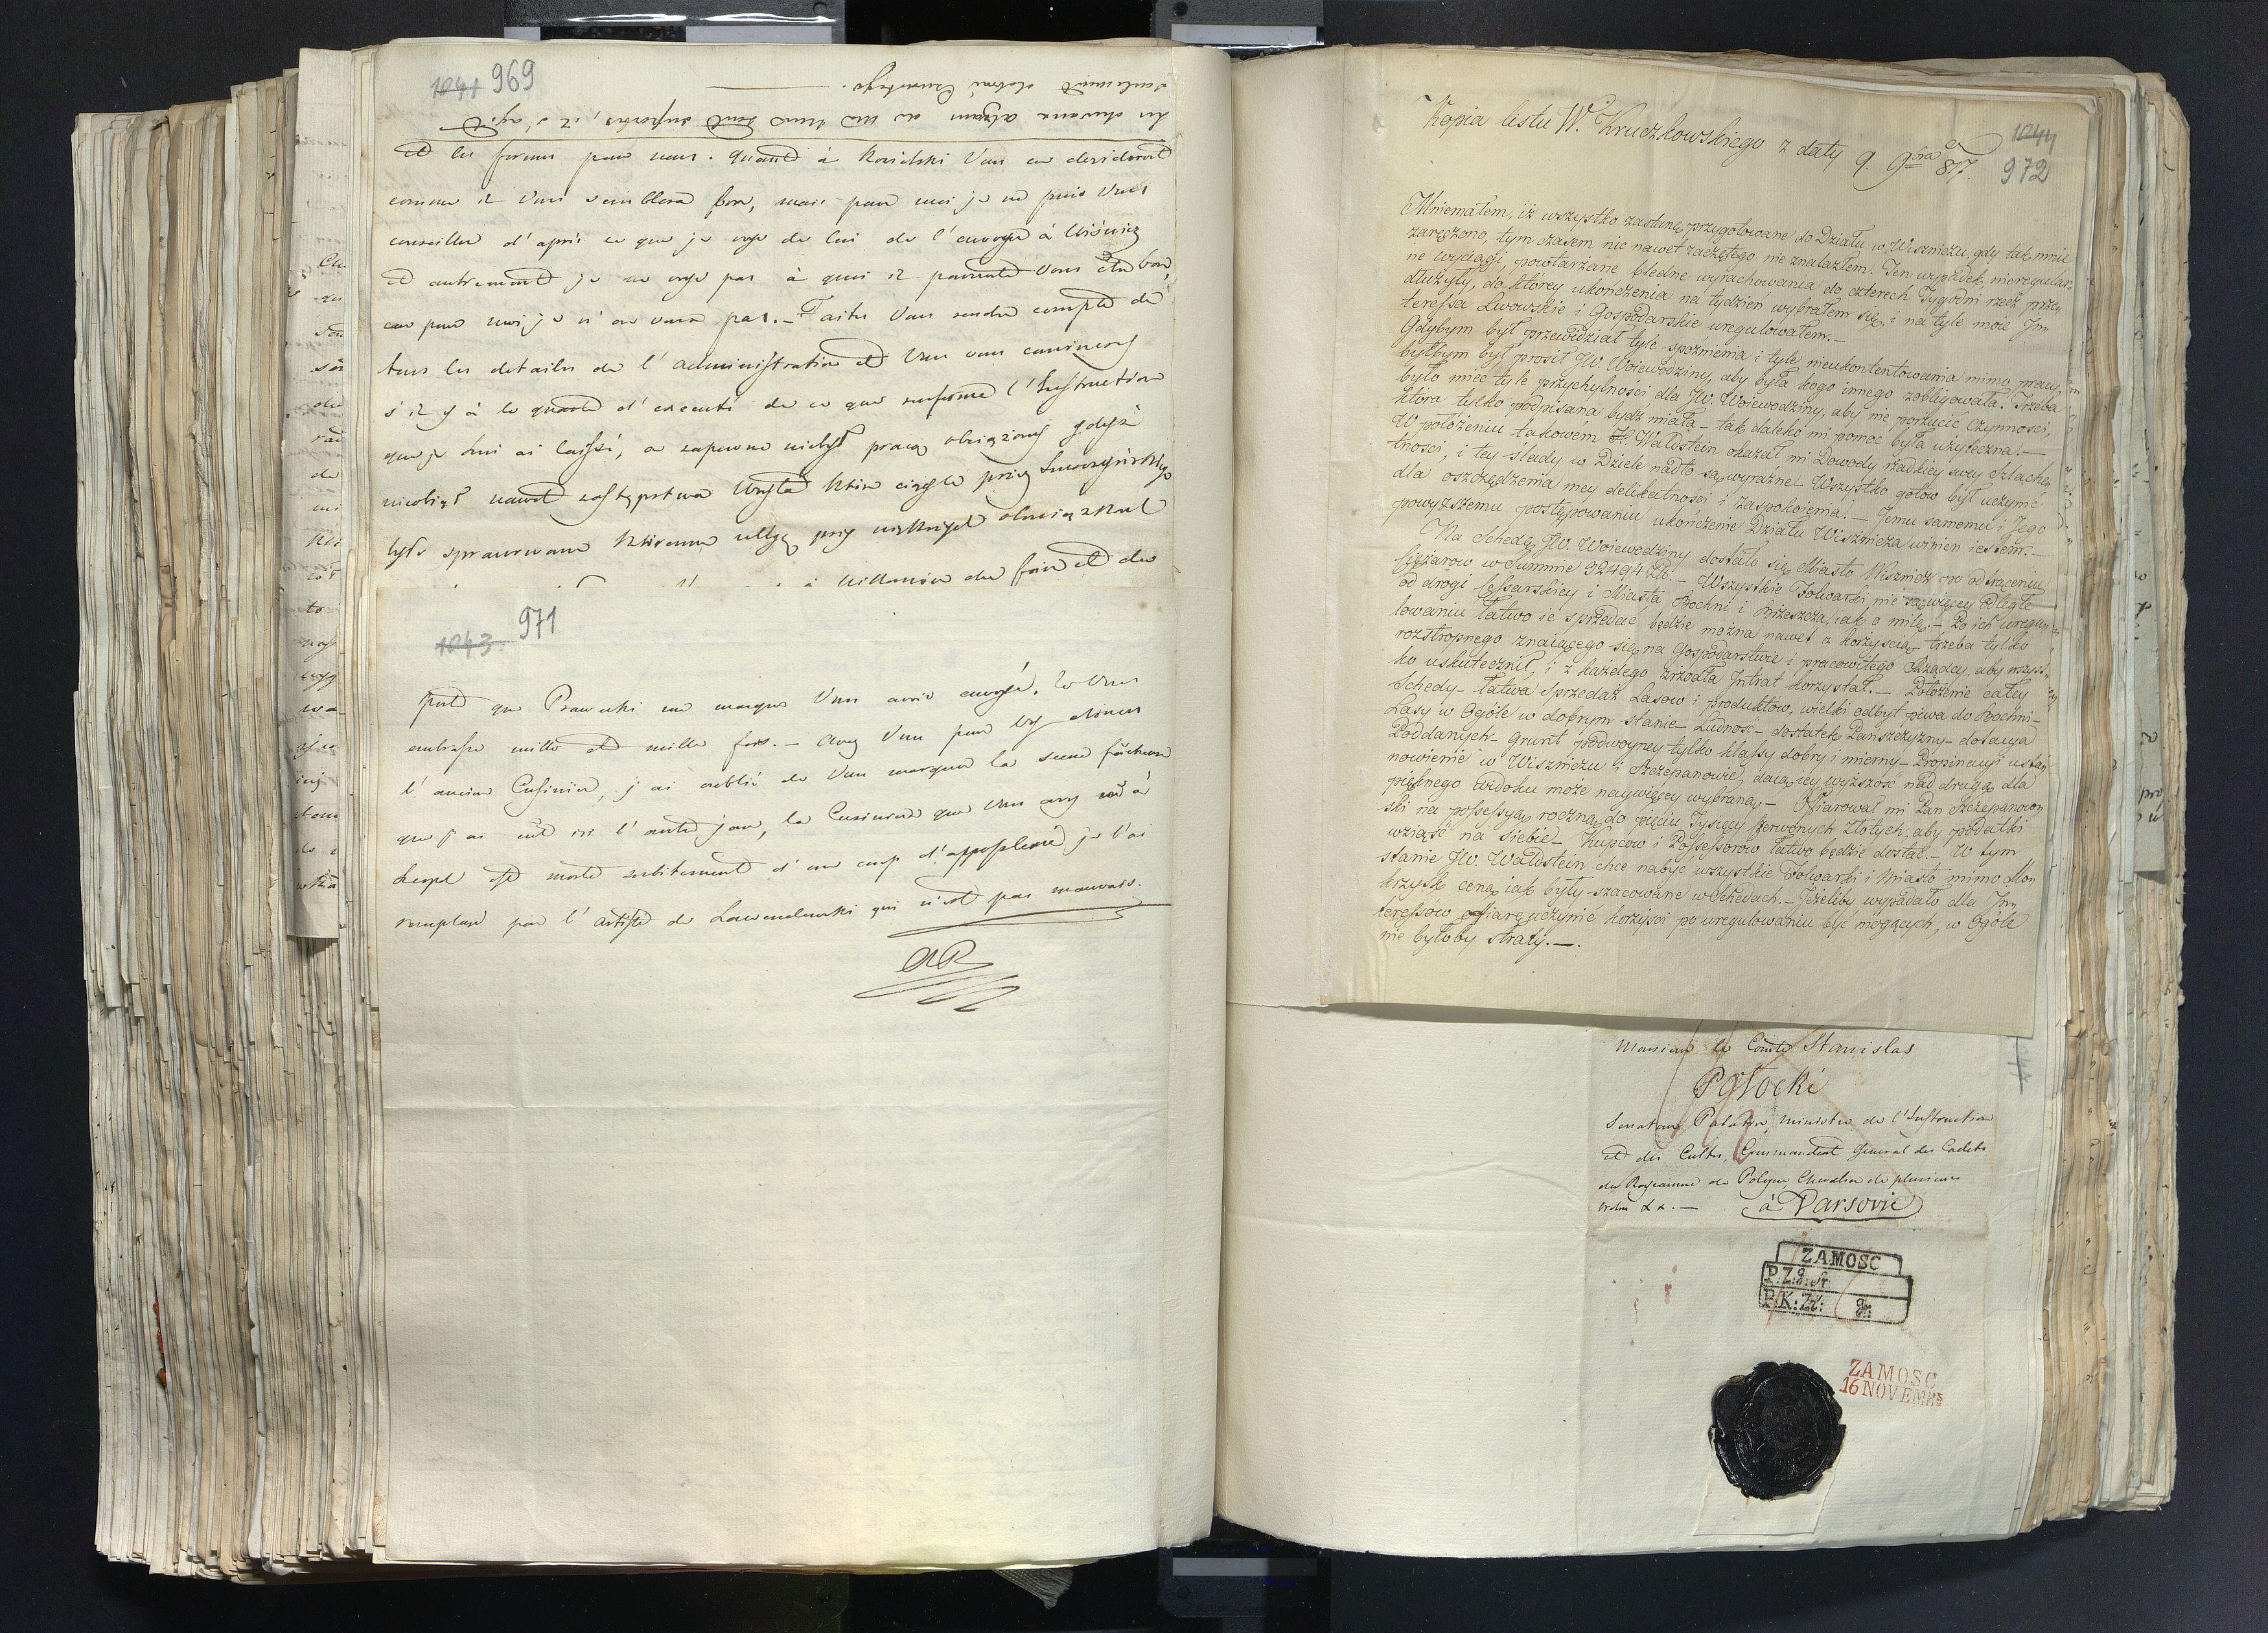 1041 969
les chevaux
et les ferons pour nous. Quant à Kosielski Vous en deciderez
comme il Vous semblera bon, mais pour moi je ne puis Vous
conseiller d'après ce que je vois de lui de l'envoyer à Wiśnicz
et autrement je ne vois pas à quoi il pourrait Vous être bon,
car pour moi je n'en veux pas. – Faites Vous rendre compte de
tous les details de l'administration et Vous vous convaincrez
s'il y a le quart d'executé de ce que renferme l'Instruction
que je lui ai laissé, a zapewne nie był pracą obciążony gdyż
nie objął nawet zastępstwa Wójta które ciągle przez
było sprawowane któremu ulgę przy obowiązkach
à Willanów du foin et du
1043 971
que Prawecki me marque Vous avoir envoyé. Je Vous
embrasse mille et mille fois. –
l'ancien Cuisinier, j'ai oublié de Vous marquer la scene fâcheuse
que j'ai eut ici l'autre jour, le Cuisinier que Vous avez
est mort subitement d'un coup d'appoplexie je l'ai
remplacé par l'artiste de qui n'est pas mauvais.
AP
Kopia listu W. Kruczkowskiego z daty 9. 9bra 817
1044
972
Mniemałem, iż wszystko zastanę przygotowane do Działu w Wiszniczu, gdy tak mnie
zaręczono, tym czasem nic nawet zaczętego nie znalazłem. Ten wypadek, nieregular„
ne wyciągi, powtarzane błędne wyrachowania do czterech Tygodni rzecz prze„
dłużyły, do którey ukończenia na tydzień wybrałem się, i na tyle moie Jn„
teressa Lwowskie i Gospodarskie uregulowałem. –
Gdybym był przewidział tyle spoźnienia i tyle nieukontentowania mimo pracy,
byłbym był prosił JW. Woiewodziny, aby była kogo innego zobligowała. Trzeba
było mieć tyle przychylności dla JW. Woiewodziny, aby nie porzucić czynności,
która tylko podpisana bydź miała – tak daleko mi pomoc była użyteczna. –
W położeniu takowém H. Waldstein okazał mi Dowody rzadkiey swey Szlache„
tności, i tey ślady w Dziele nadto są wyraźne – Wszystko gotów był uczynić
dla oszczędzenia mey delikatności i zaspokoienia. – Jemu samemu i Jego
powyższemu postępowaniu ukończenie Działu Wisznicza winien iestem. –
Na Schedę JW. Woiewodziny dostało się Miasto Wisznicz po odtrąceniu
Ciężarow w Summie 92494 – Wszystkie Folwarki nie są więcey odległe
od drogi Cessarskiey i Miasta Bochni i Brzeszcza, iak o milę. – Po ich uregu„
lowaniu łatwo ie sprzedać będzie można nawet z korzyścią – trzeba tylko
rozstropnego znaiącego się na Gospodarstwie i pracowitego Rządcy, aby wszyst„
ko uskutecznił, i z każdego źrzodła Jntrat korzystał. – Położenie całey
Schedy – łatwa Sprzedaż Lasow i produktów, wielki odbyt piwa do Bochni –
Lasy w Ogóle w dobrym stanie – Ludność – dostatek Pańszczyzny – dotacya
Poddanych – Grunt podwoyney tylko klassy dobry i mierny – Propinacyi usta„
nowienie w Wiszniczu i Szczepanowie, daią iey wyższość nad drugą dla
pięknego widoku może naywięcey wybraną. – Ofiarował mi Pan Szczepanow„
ski na possessyą roczną do pięciu Tysięcy Czerwonych Złotych, aby podatki
wziąść na siebie – Kupców i Possessorów łatwo będzie dostać. – W tym
stanie JW. Waldstein chce nabyć wszystkie Folwarki i Miasto mimo Mo„
krzysk ceną iak były szacowane w Schedach. – Jeżeliby wypadało dla Jn„
teressów ofiarę uczynić korzyści po uregulowaniu być mogących, w Ogóle
nie byłoby straty. –
Monsieur le Comte Stanislas
Potocki
Senateur Palatin, Ministre de l'Instruction
et des Cultes, Commandant General des Cadets
du Royaume de Pologne, Chevalier de plusieurs
ordres &&. – à Varsovie
ZAMOSC
P.Z: g: Sr:
P.K: Zł: gr:
ZAMOSC
16 NOVEMBS